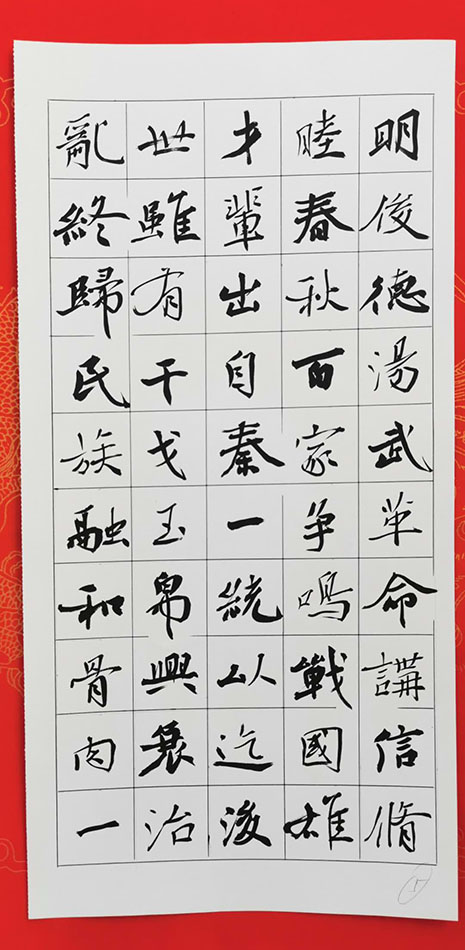 明俊德湯武革命講信脩
睦春秋百家争鳴戰國雄
才輩出自秦一統以迄後
世雖有干戈玉帛興衰治
亂終歸民族融和骨肉一